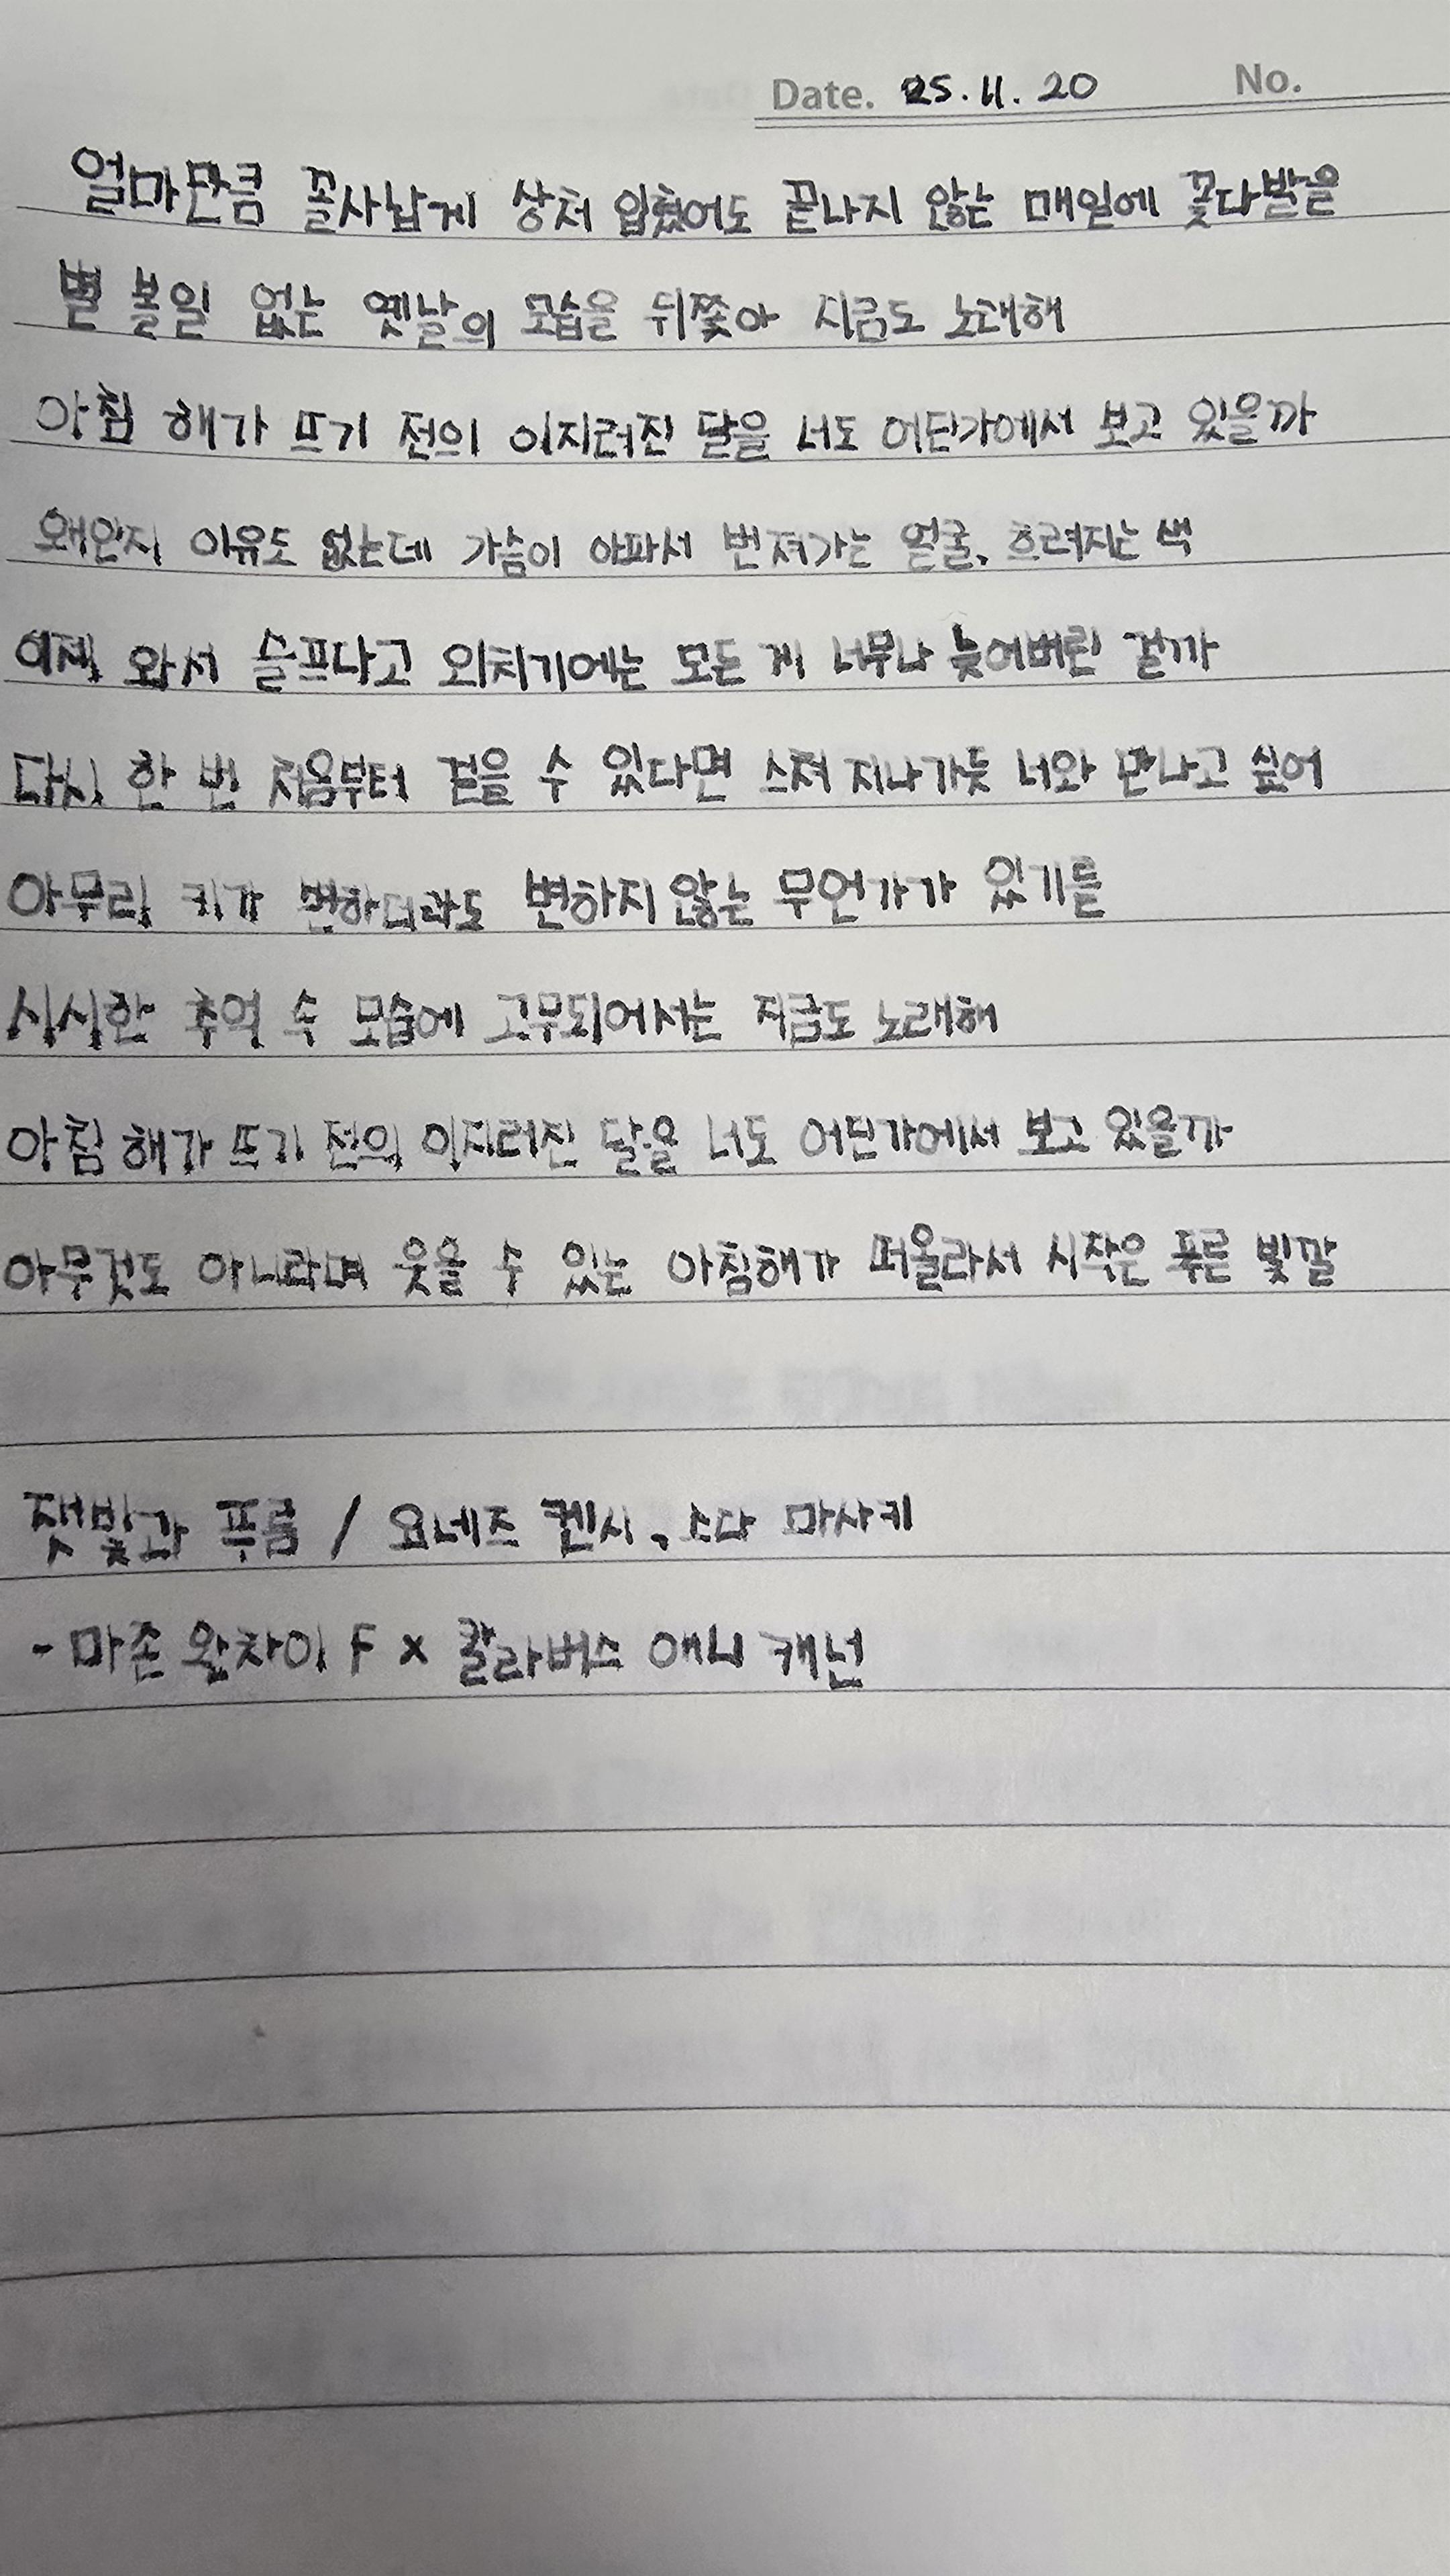 Date. 25.11.20 No.
얼마만큼 꼴사납게 상처 입혔어도 끝나지 않는 매일에 꽃다발을
별 볼일 없는 옛날의 모습을 뒤쫓아 지금도 노래해
아침 해가 뜨기 전의 이지러진 달을 너도 어딘가에서 보고 있을까
왜인지 이유도 없는데 가슴이 아파서 번져가는 얼굴, 흐려지는 색
이제 와서 슬프다고 외치기에는 모든 게 너무나 늦어버린 걸까
다시 한 번 처음부터 걸을 수 있다면 스쳐 지나가듯 너와 만나고 싶어
아무리 키가 변하더라도 변하지 않는 무언가가 있기를
시시한 추억 수 모습에 고무되어서는 지금도 노래해
아침 해가 뜨기 전의 이지러진 달을 너도 어딘가에서 보고 있을까
아무것도 아니라며 웃을 수 있는 아침해가 떠올라서 시작은 푸른 빛깔
잿빛과 푸름 / 요네즈 켄시, 스다 마사키
- 마존 완차이 F x 칼라버스 애니 캐넌